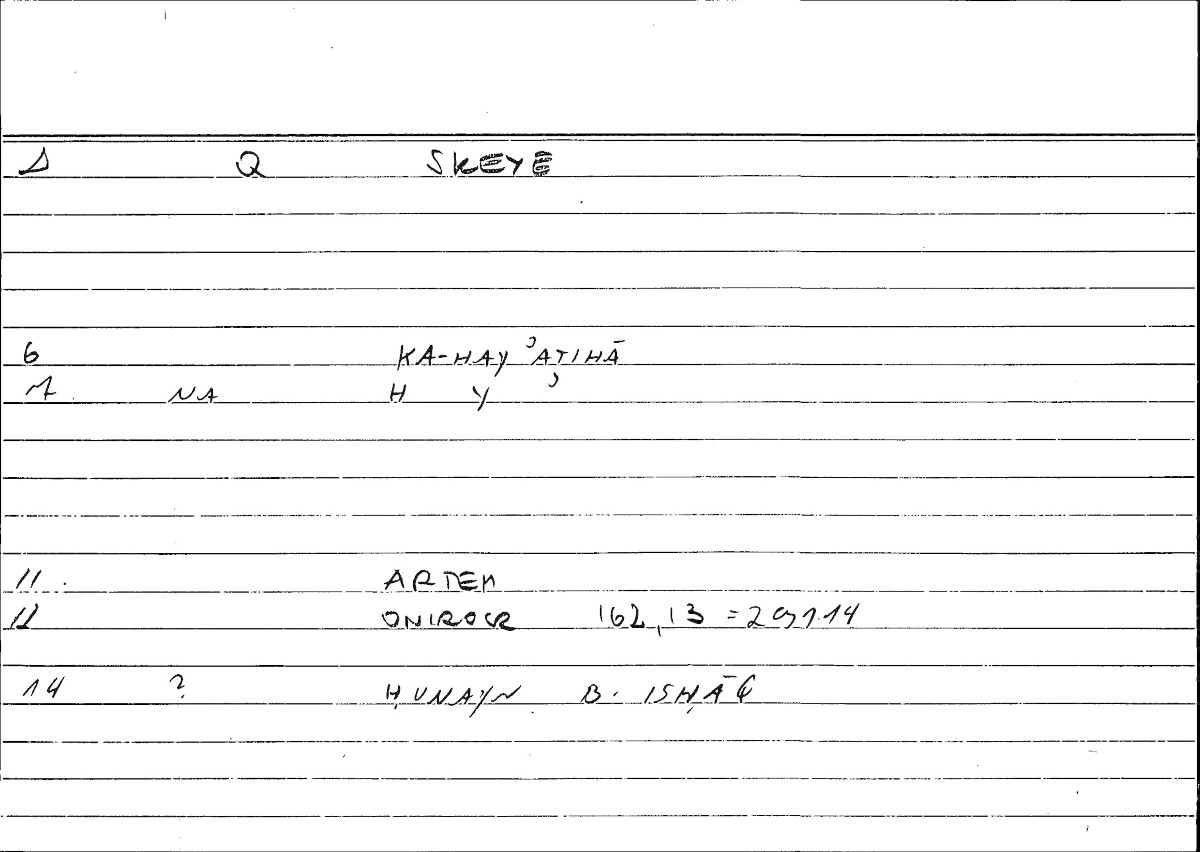 Δ Q SKEYĒ
6 KA-HAY ʾAṬIHĀ
7 NA H Y ʾ
11 ARTEM
12 ONIROCR 162,13 = 291.14
14 ? ḤUNAYN B. ISḤĀQ